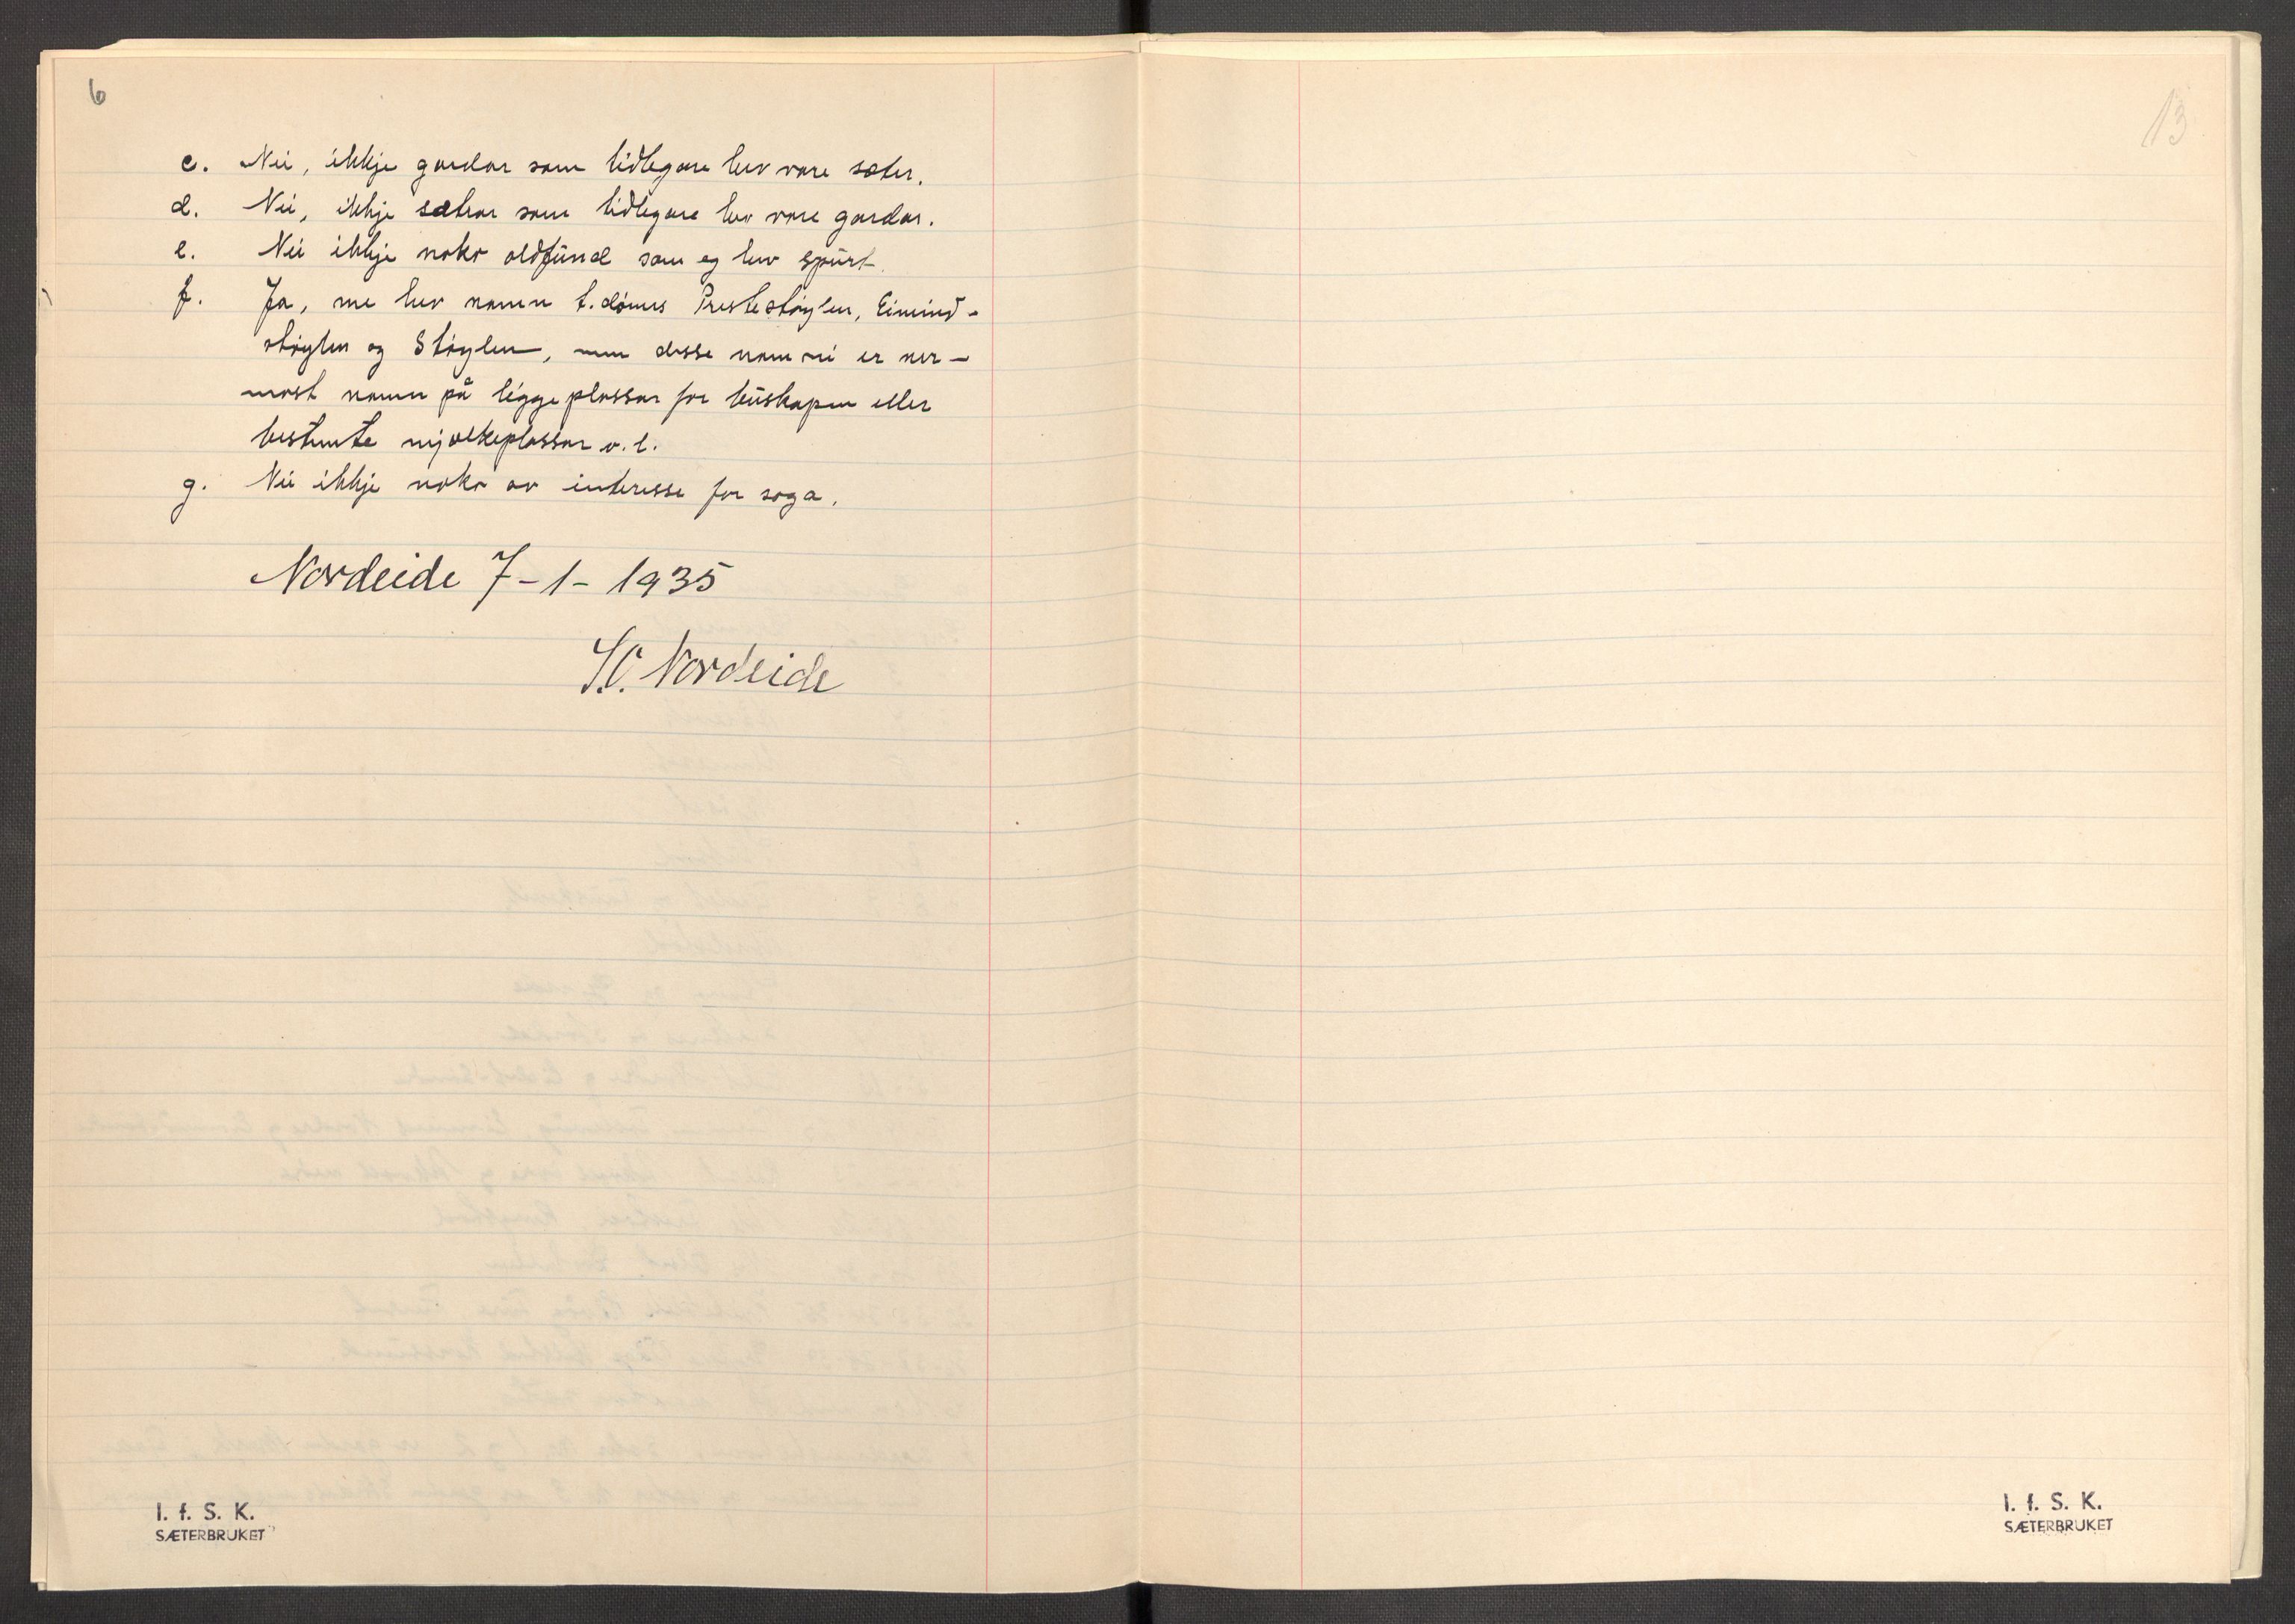 6
c. Nei, ikkje gardar som tidlegare hev vore sæter.
d. Nei, ikkje sætrar som tidlegare hev vore gardar.
e. Nei ikkje noko oldfund som eg hev spurt.
f. Ja, me hev namn t.dømes Prestestøylen, Eimind-
støylen og Støylen, men disse namni er nær-
mast namn på liggeplassar for buskapen eller
bestemte mjølkeplassar o.l.
g. Nei ikkje noko av interesse for soga.
Nordeide 7-1-1935
Nordeide
I. f. S. K.
SÆTERBRUKET
13
I. f. S. K.
SÆTERBRUKET